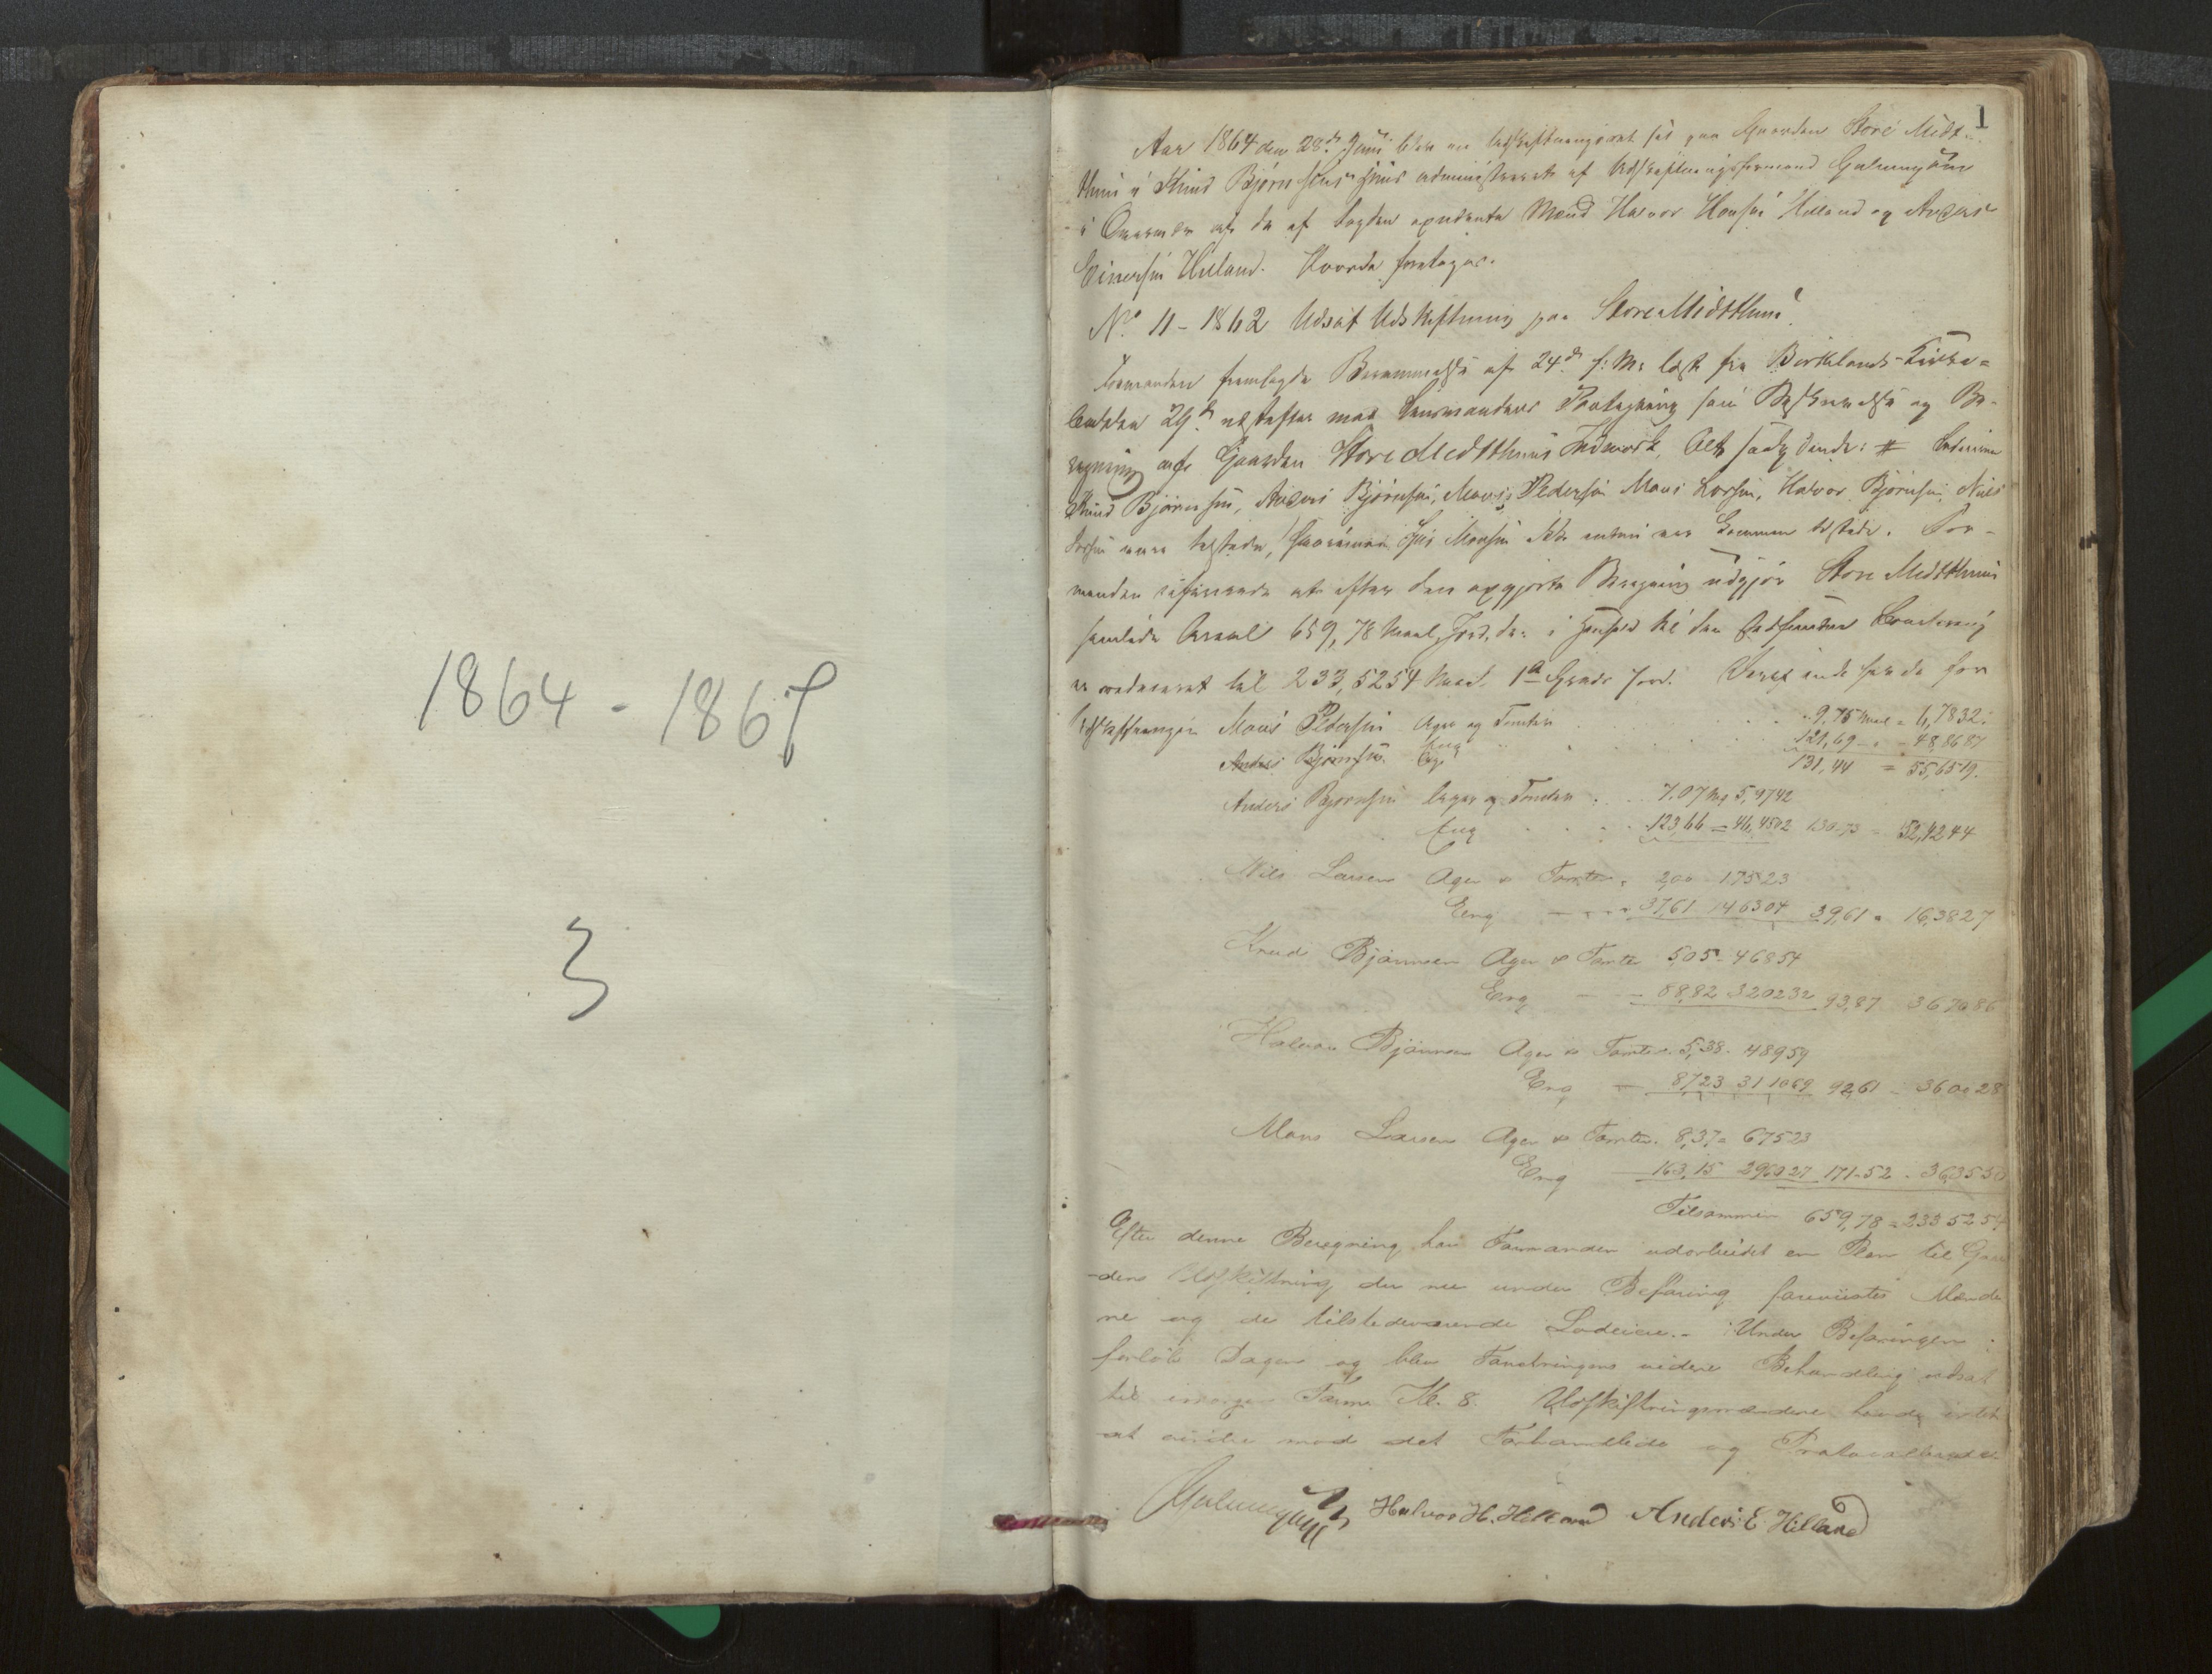 1864 - 1867
3
1
Aar 1864 den 28de Juni blev en Udskiftningsret sat paa Gaarden Store Midt-
thun i Knud Bjørnsens Huus administreret af Udskiftningsformand
i Overvær af de af Fogden opnævnte Mænd Halvor Hansen Helland og Anders
Einersen Helland. Hvorda foretoges.
No 11 - 1862 Udsat Udskiftning paa Store Midtthun
Formanden fremlagde Berammelse af 24de f: M: læst fra Birkelands Kirke=
bakken 29de næstefter med Lensmandens Paategning samt Beskrivelse og Be-
regning over Gaarden Store Midtthuns Indmark, Alt saalydende: # Lodeierne
Knud Bjørnsen, Anders Bjørnsen, Mons Pedersen Mons Larsen, Halvor Bjørnsen, Nils
Larsen vare tilstede, Monsen ikke enten var kommen tilstede. For-
manden refererede at efter den opgjorte Beregning udgjør Store Midtthun
samlede Areal 659,78 Maal Jord, der i Henhold til den Bonitering
er reduceret til 233,5254 Maal 1ste Grads Jord. Deraf inde har de for
Udskiftningen Mons Pedersen Ager og Tomter . . . 9,75 Maal = 6,7832.
Anders Bjørnsen. Eng . . . 121,69 - 48,8687
131,44 = 55,6519.
Anders Bjørnsen Ager og Tomter . . . 7,07 5,9742
Eng . . . 123,66 = 46,4502 130-73 = 52,4244
Nils Larsen Ager & Tomter . 2,00 1,7523
Eng - - - 37,61 14,6304 39,61 = 16,3827
Knud Bjørnsen Ager & Tomter 5,05 - 4,6854
Eng - - 88,82 32,0232 93,87 36,7086
Halvor Bjørnsen Ager & Tomter . 5,38 . 4,8959
Eng - 87,23 31,1069 92,61 - 36,0028
Mons Larsen Ager & Tomter . 8,37 = 6,7523
Eng 163,15 29,6027 171-52 - 36,3550
Tilsammen 659,78 = 233 5254
Efter denne Beregning har Formanden udarbeidet en Plan til Gaar
-dens Udskiftning, der nu under Befaring forevistes Mænde
ne og de tilstedeværende Lodeiere. - Under Befaringen
forløb Dagen og blev Forretningens videre Behandling udsat
til imorgen Form: Kl. 8. Udskiftningsmændene havde intet
at erindre mod det Forhandlede og Protocollerede
Halvor H. Helland Anders E. Hilland